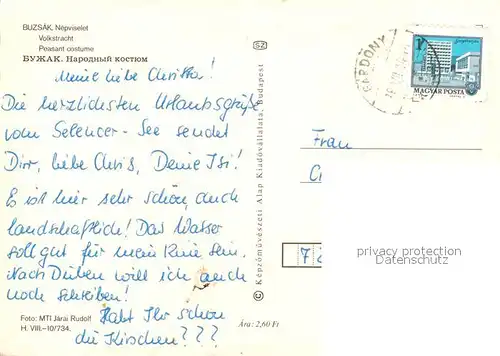 BUZSÁK, Népviselet
Volkstracht
Peasant costume
БУЖАК. Народный костюм
Meine liebe Christa!
Die herzlichsten Urlaubsgrüße
vom Selencer-See sendet
Dir, liebe Chris, Deine Isi!
Es ist hier sehr schön, auch
landschaftlich! Das Wasser
soll gut für mein Knie sein.
Nach Düben will ich auch
noch schreiben!
Habt Ihr schon
die Kirschen???
Foto: MTI Járai Rudolf
H. VIII.–10/734.
Ára: 2,60 Ft
SZ
© Képzőművészeti Alap Kiadóvállalata, Budapest
GÁRDONY
MAGYAR POSTA
Frau
C
7
privacy protection
Datenschutz